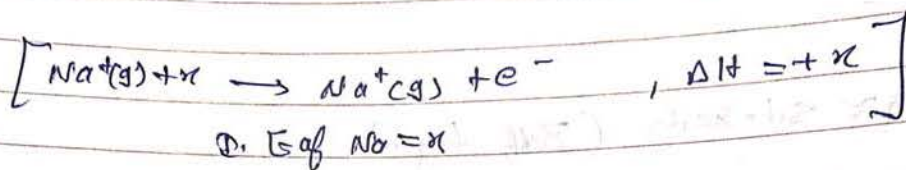 [Na⁺(g) + x → Na⁺(g) + e⁻ , ΔH = +x]
I. E of Na = x